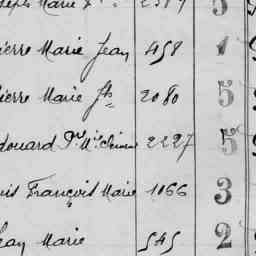 Marie 2389 5
ierre Marie Jean 458 1
ierre Marie Js 2080 5
douard Pre Mie 2227 5
uis François Marie 1066 3
ean Marie 545 2